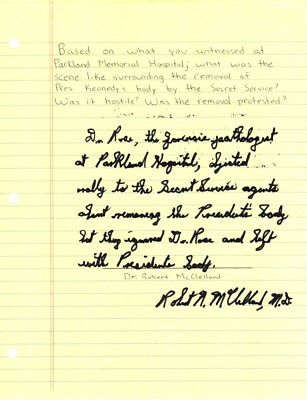 Based on what you witnessed at
Parkland Memorial Hospital, what was the
scene like surrounding the removal of
Pres. Kennedy's body by the Secret Service?
Was it hostile? Was the removal protested?
Dr. Rose, the forensic pathologist
at Parkland Hospital, objected
to the Secret Service agents
about removing the Presidents body
but they ignored Dr. Rose and left
with Presidents body.
Dr. Robert McClelland
Robert N. McClelland, M.D.